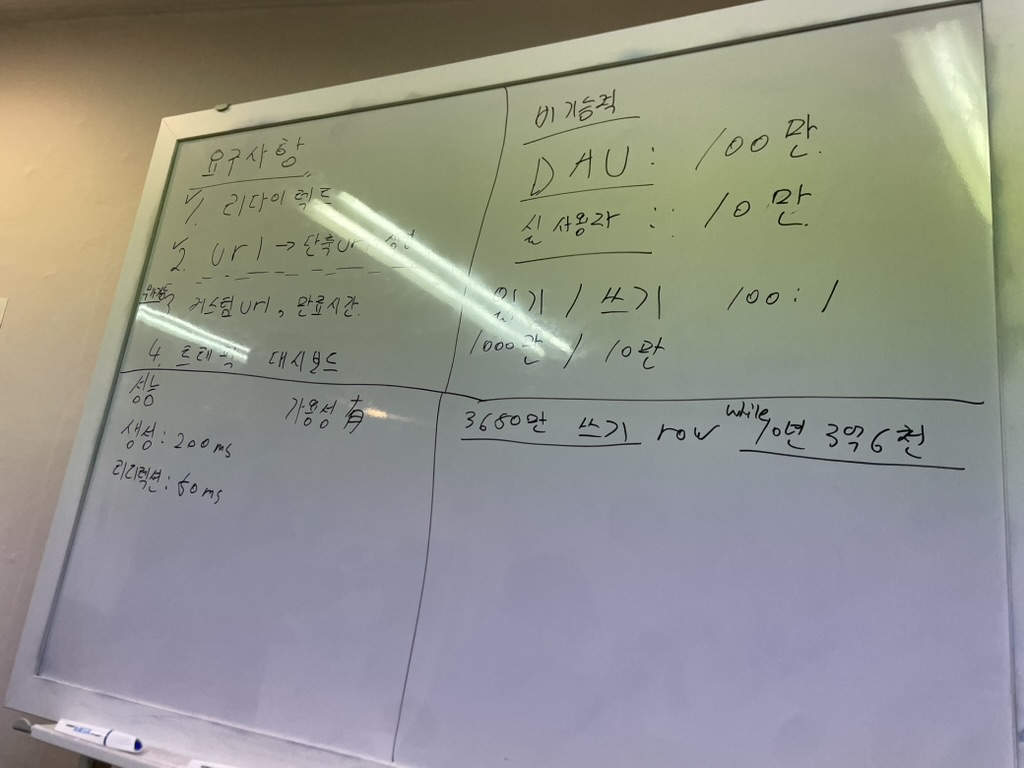 요구사항
1. 리다이렉트
2. url → 단축url 생성
3. 커스텀 url, 만료시간.
4. 트래픽 대시보드
비기능적
DAU: 100만.
실 사용자: 10만.
읽기 / 쓰기 100:1
1000만 / 10만
성능 가용성 有
생성: 200ms
리디렉션: 60ms
3680만 쓰기 row while 10년 3억6천